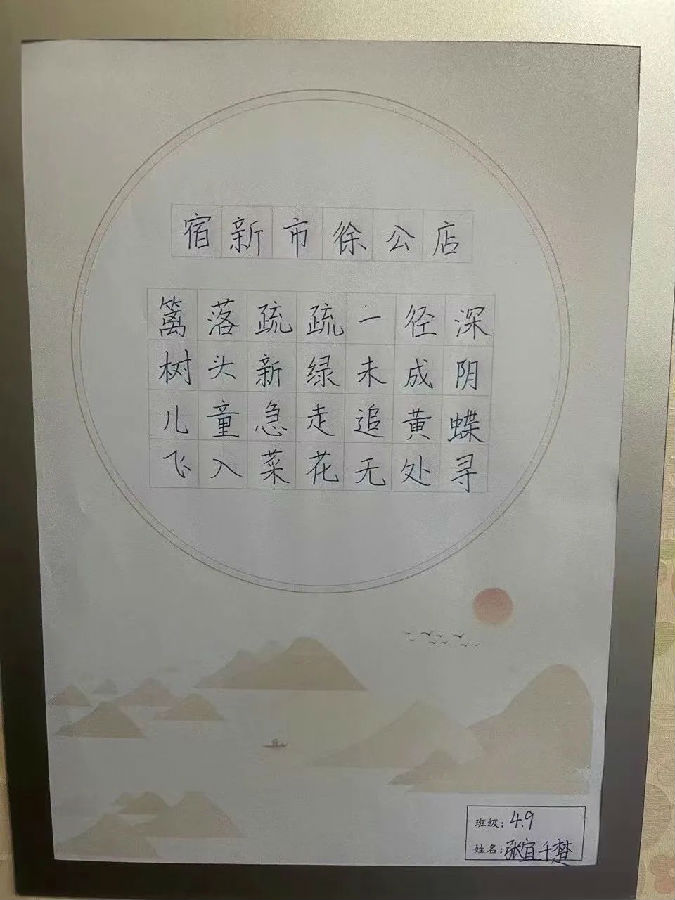 宿新市徐公店
篱落疏疏一径深
树头新绿未成阴
儿童急走追黄蝶
飞入菜花无处寻
班级：4.9
姓名：张宜千楚